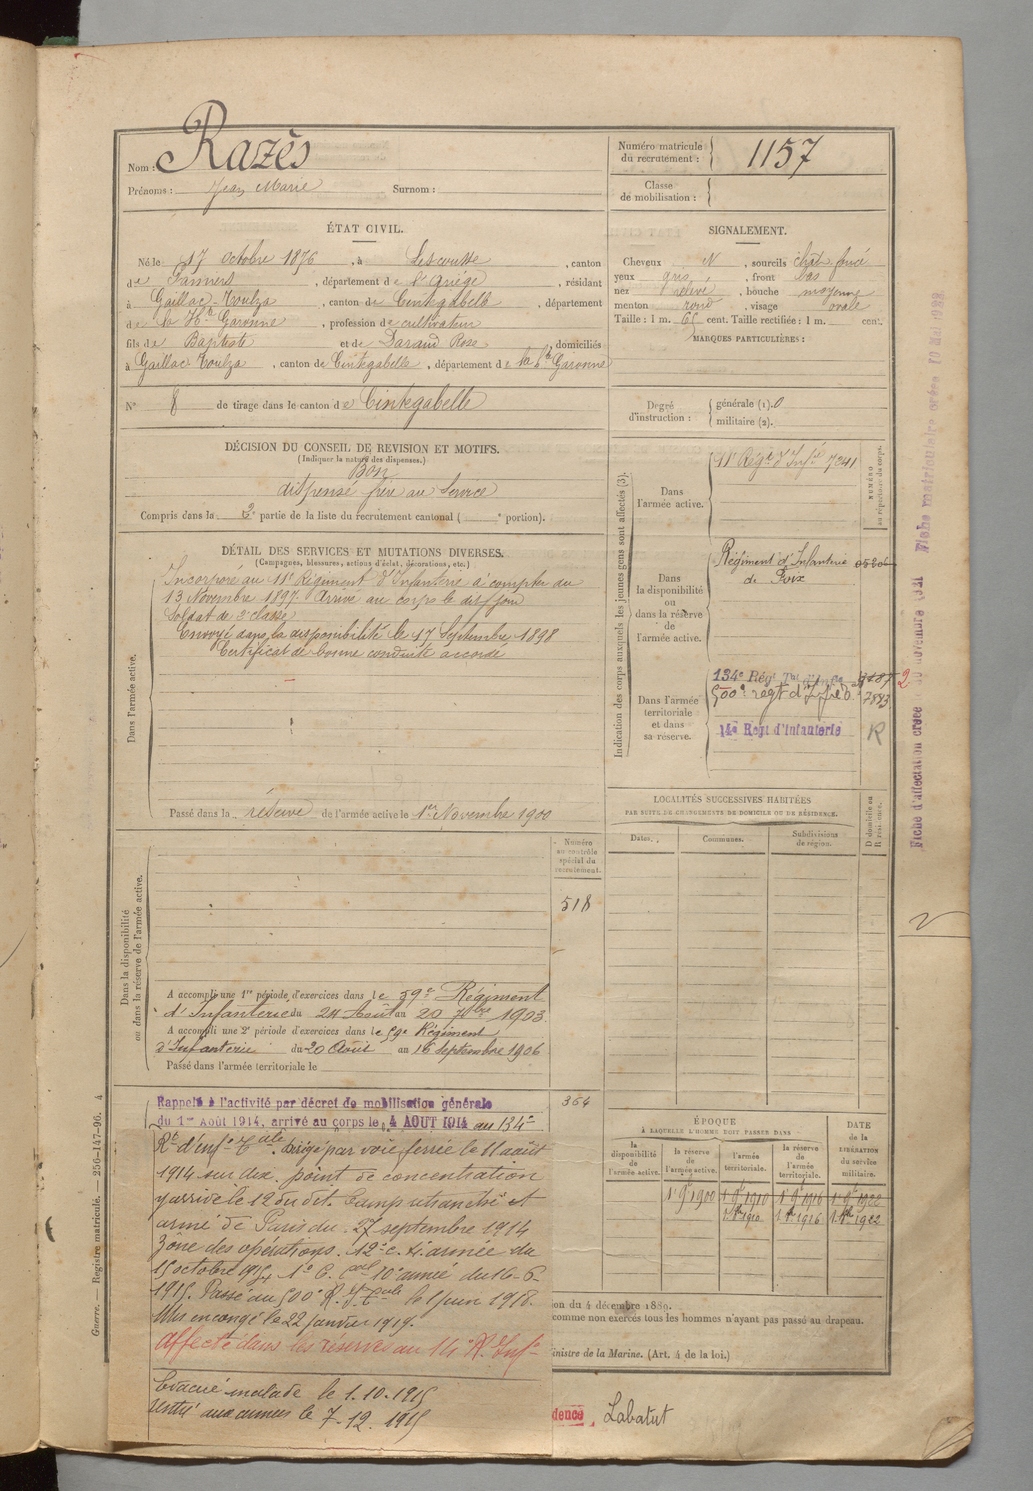 Nom : Razès
Prénoms : Jean Marie Surnom :
Numéro matricule du recrutement : 1157
Classe de mobilisation :
ÉTAT CIVIL.
Né le 17 octobre 1876, à Lescousse, canton
de Pamiers, département de l'Ariège, résidant
à Gaillac-Toulza, canton de Cintegabelle, département
de la Hte Garonne, profession de cultivateur
fils de Baptiste et de Daraud Rose, domiciliés
à Gaillac Toulza, canton de Cintegabelle, département de la Hte Garonne
N° 8 de tirage dans le canton de Cintegabelle
SIGNALEMENT.
Cheveux N, sourcils chat. foncé
yeux gris, front bas
nez relevé, bouche moyenne
menton rond, visage ovale
Taille : 1 m. 65 cent. Taille rectifiée : 1 m. cent.
MARQUES PARTICULIÈRES :
Degré d'instruction : générale (1). 0
militaire (2).
DÉCISION DU CONSEIL DE REVISION ET MOTIFS.
(Indiquer la nature des dispenses.)
Bon
dispensé frère au service
Compris dans la 2e partie de la liste du recrutement cantonal ( e portion).
DÉTAIL DES SERVICES ET MUTATIONS DIVERSES.
(Campagnes, blessures, actions d'éclat, décorations, etc.)
Dans l'armée active.
Incorporé au 11e Régiment d'Infanterie à compter du
13 Novembre 1897. Arrivé au corps le dit jour
Soldat de 2e classe
Envoyé dans la disponibilité le 17 Septembre 1898
Certificat de bonne conduite accordé
Passé dans la réserve de l'armée active le 1er Novembre 1900
Indication des corps auxquels les jeunes gens sont affectés (3).
NUMÉRO au répertoire du corps.
Dans l'armée active.
11e Régt d'Infie 7241
Dans la disponibilité ou dans la réserve de l'armée active.
Régiment d'Infanterie
de Foix
Dans l'armée territoriale et dans sa réserve.
134e Régt Tal d'Infie
500e régt d'Infie
7883
14e Regt d'Infanterie R
2
LOCALITÉS SUCCESSIVES HABITÉES
PAR SUITE DE CHANGEMENTS DE DOMICILE OU DE RÉSIDENCE.
Dates. Communes. Subdivisions de région. D domicile ou R résidence.
Dans la disponibilité ou dans la réserve de l'armée active.
Numéro au contrôle spécial du recrutement.
518
A accompli une 1re période d'exercices dans le 59e Régiment
d'Infanterie du 24 Août au 20 7bre 1903
A accompli une 2e période d'exercices dans le 59e Régiment
d'Infanterie du 20 Août au 16 septembre 1906
Passé dans l'armée territoriale le
364
Rappelé à l'activité par décret de mobilisation générale
du 1er Août 1914, arrivé au corps le 4 AOUT 1914 au 134e
Rt d'inf. Tale. Dirigé par voie ferrée le 11 août
1914 sur dex. point de concentration
y arrive le 12 du dit. Camp retranché et
armé de Paris du 27 septembre 1914
Zône des opérations. 12e c. 4e armée du
15 octobre 1e C. Col 10e armée du 16-6-
1915. Passé au 500e R. I. Tale le 1 juin 1918.
Mis en congé le 22 janvier 1919.
Affecté dans les réserves au 14e R. Infie
Evacué malade le 1.10.1915
rentré aux armées le 7-12.1915
ÉPOQUE
À LAQUELLE L'HOMME DOIT PASSER DANS
la disponibilité de l'armée active. la réserve de l'armée active. l'armée territoriale. la réserve de l'armée territoriale.
DATE de la LIBÉRATION du service militaire.
1 9e 1900 1 9e 1910 1 9e 1916 1 9e 1922
1910 1916 1922
on du 4 décembre 1889.
comme non exercés tous les hommes n'ayant pas passé au drapeau.
inistre de la Marine. (Art. 4 de la loi.)
dence Labatut
Guerre. — Registre matricule. 256-147-96. 4
Fiche matriculaire créée 10 Mai 1938
Fiche d'affectation créée novembre 1931